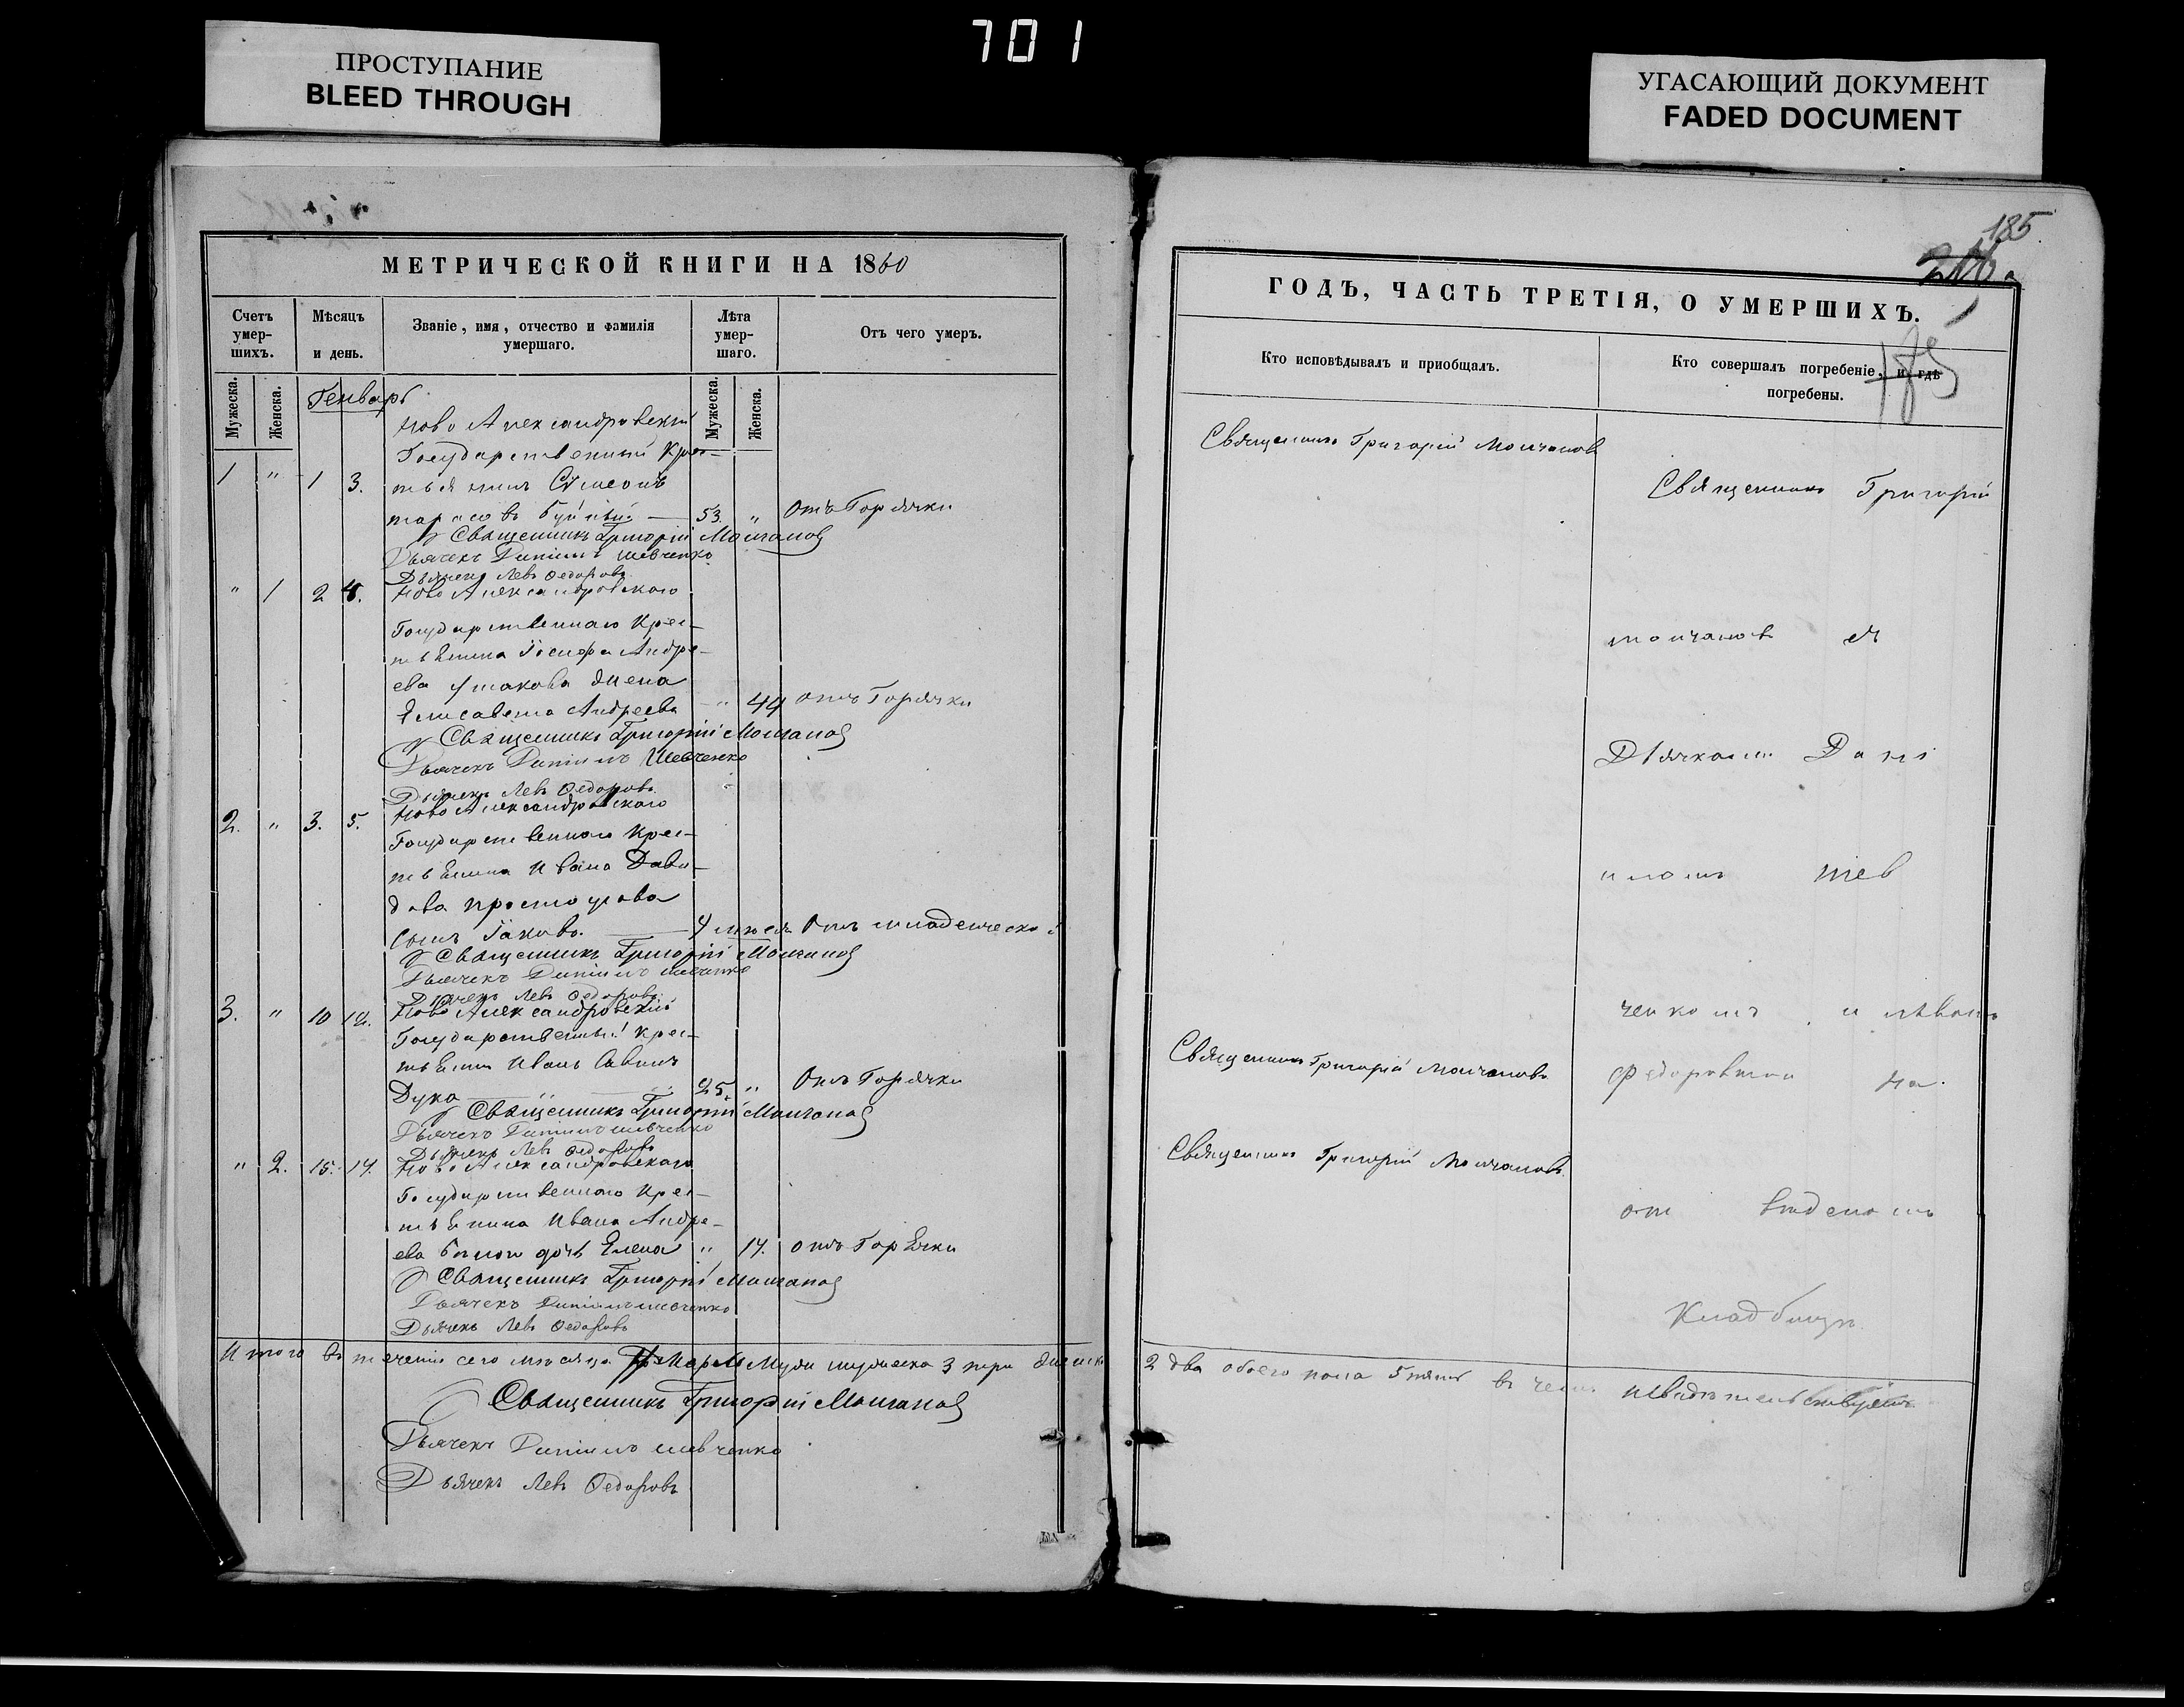 701
ПРОСТУПАНИЕ
BLEED THROUGH
УГАСАЮЩИЙ ДОКУМЕНТ
FADED DOCUMENT
МЕТРИЧЕСКОЙ КНИГИ НА 1860
Счетъ умерших.
Мѣсяцъ и день.
Званіе, имя, отчество и фамилія умершаго.
Лѣта умершаго.
Отъ чего умеръ.
Мужеска.
Женска.
Мужеска.
Женска.
Генварь
Ново Александровскій
Государственный Крес-
1 " 1 3. тьянинъ Симеонъ
тарасовъ 53. " отъ Горячки
Священникъ Григорій Молчановъ
Дьячекъ Даніилъ Шевченко
Дьячекъ Левъ Федоровъ
" 1 2 4. Ново Александровского
Государственнаго Крес-
тьянина Іосифа Андре-
ева Ушакова жена
Елисавета Андреева " 44 отъ Горячки
Священникъ Григорій Молчановъ
Дьячекъ Даніилъ Шевченко
Дьячекъ Левъ Федоровъ
2. " 3. 5. Ново Александровского
Государственнаго Крес-
тьянина Ивана Дави-
дова
сынъ Іаковъ. Отъ младенческой
Священникъ Григорій Молчановъ
Дьячекъ Даніилъ Шевченко
Дьячекъ Левъ Федоровъ
3. " 10 12. Ново Александровскій
Государственный Крес-
тьянинъ Иванъ Савинъ
Дука 25. " Отъ Горячки
Священникъ Григорій Молчановъ
Дьячекъ Даніилъ Шевченко
Дьячекъ Левъ Федоровъ
" 2. 15. 17. Ново Александровского
Государственнаго Крес-
тьянина Ивана Андре-
ева дочь Елена " 17. отъ Горячки
Священникъ Григорій Молчановъ
Дьячекъ Даніилъ Шевченко
Дьячекъ Левъ Федоровъ
Итого въ теченіи сего мѣсяца мужеска 3 три женска
Священникъ Григорій Молчановъ
Дьячекъ Даніилъ Шевченко
Дьячекъ Левъ Федоровъ
185
ГОДЪ, ЧАСТЬ ТРЕТІЯ, О УМЕРШИХЪ.
185
Кто исповѣдывалъ и приобщалъ.
Кто совершалъ погребеніе, и гдѣ погребены.
Священникъ Григорій Молчановъ
Священникъ Григорій
Молчановъ съ
Дьячкомъ Дані
иломъ Шев
ченкомъ и Львомъ
Священникъ Григорій Молчановъ
Федоровымъ на
Священникъ Григорій Молчановъ
кладбищѣ.
2 два обоего пола 5 пять въ чемъ